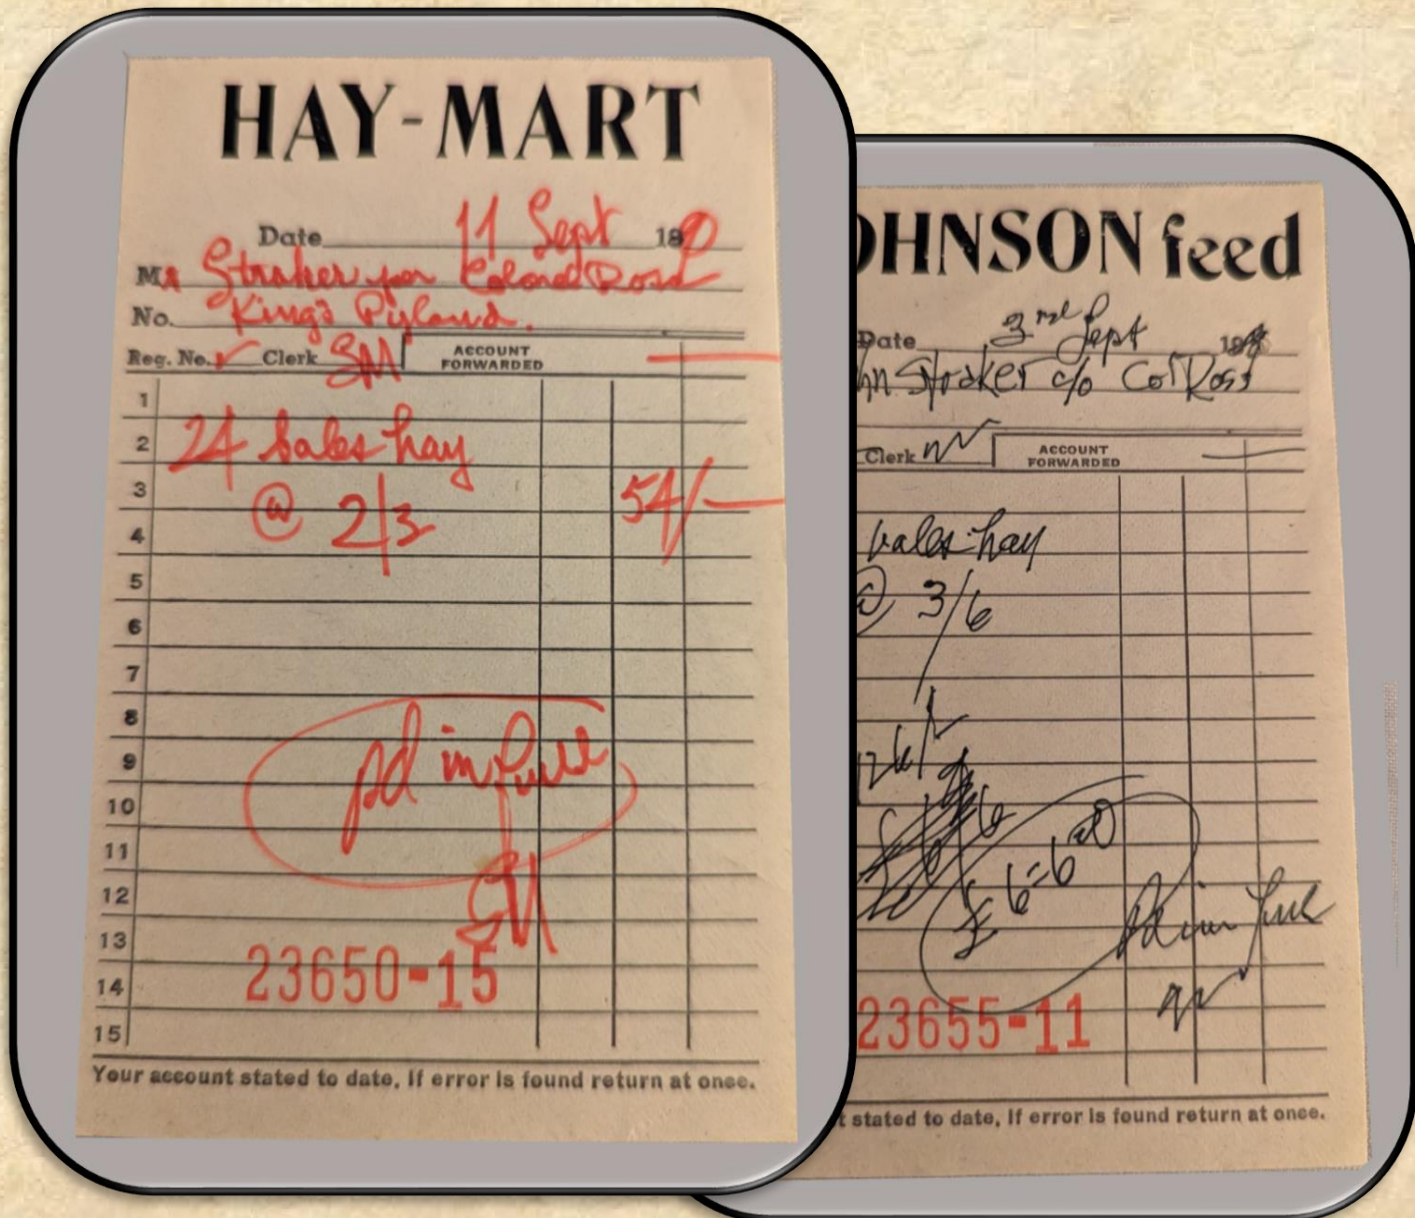 HAY-MART
Date 11 Sept 1890
Mr Straker per Colonel Ross
No. King's Pyland.
Reg. No. ✓ Clerk SM ACCOUNT FORWARDED —
1
2 24 bales hay
3 @ 2/3 54/—
4
5
6
7
8
9 pd in full
10
11
12 SM
13
14 23650-15
15
Your account stated to date. If error is found return at once.
OHNSON feed
Date 3rd Sept 18
hn Straker c/o Col Ross
Clerk ACCOUNT FORWARDED —
bales hay
@ 3/6
126/-
£6=6=0
Pd in full
23655-11
t stated to date. If error is found return at once.